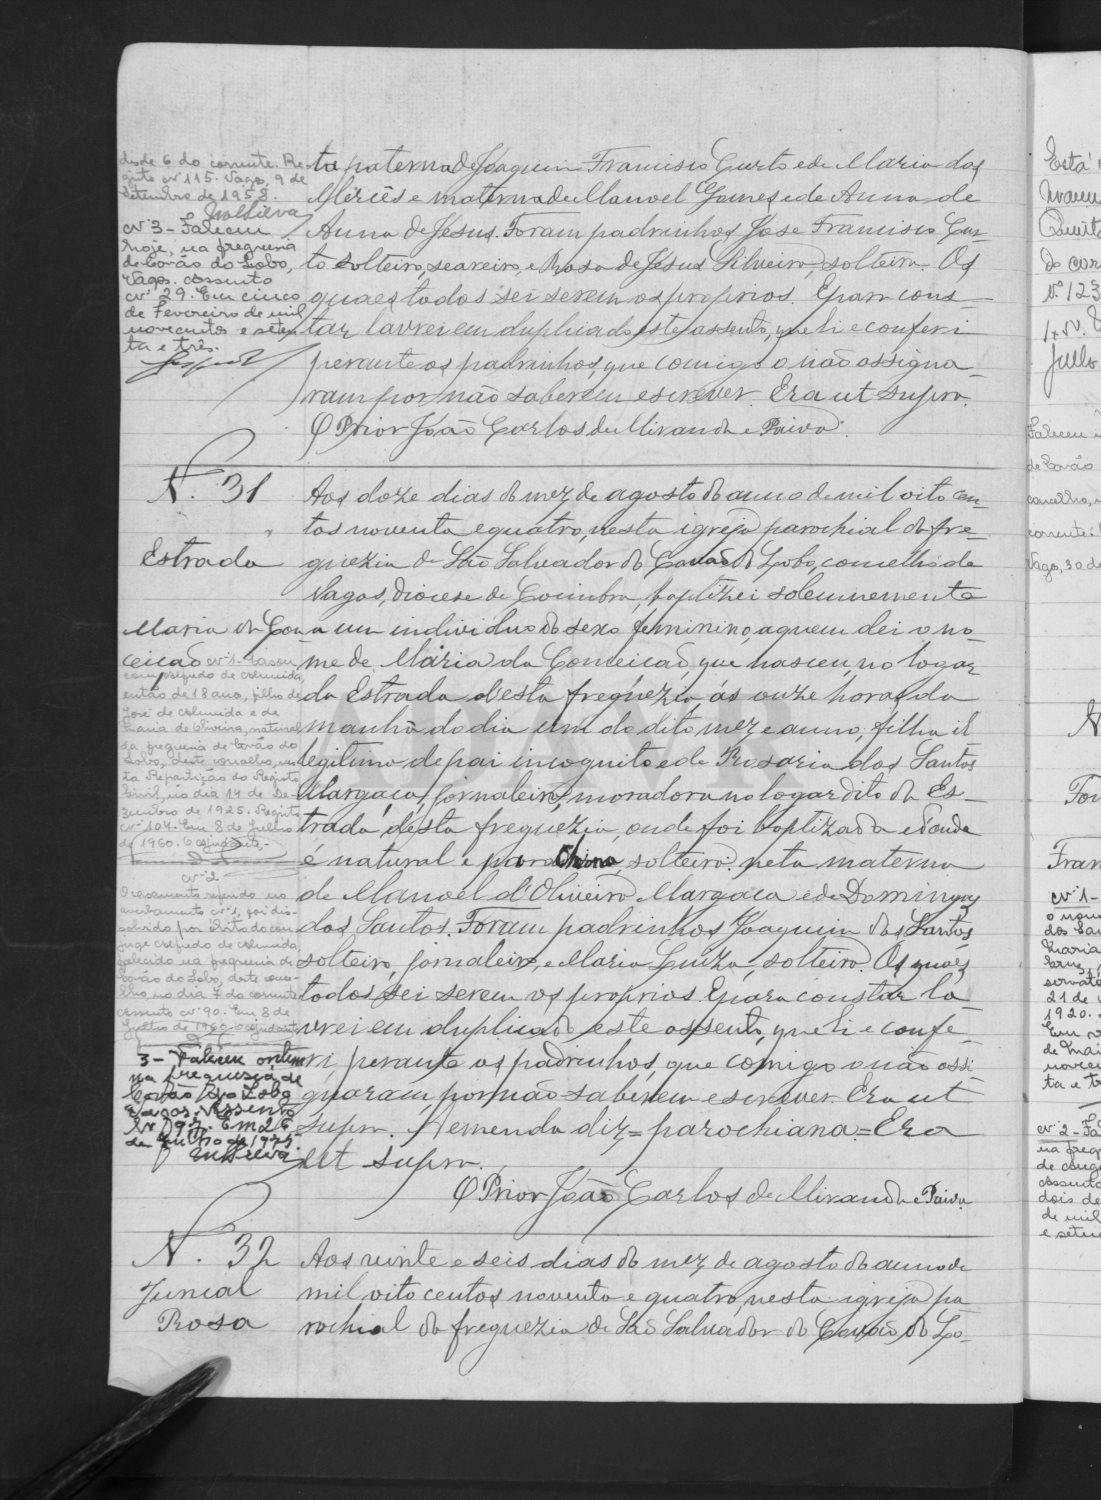 ta paterna de Joaquim Francisco Curto e de Maria das
Mercês e materna de Manoel Gomes e de Anna de
Anna de Jesus. Foram padrinhos José Francisco Cur-
to solteiro, seareiro, e Rosa de Jesus Silveira, solteira. Os
quaes todos sei serem os proprios. E para cons-
tar, lavrei em duplicado este assento, que li e conferi
perante os padrinhos, que comigo o não assigna-
ram por não saberem escrever. Era ut supra.
O Prior João Carlos de Miranda e Paiva.
dade 6 do corrente. Re-
gisto nº 115. Vagos, 9 de
Setembro de 1958.
nº 3 - Faleceu
hoje, na freguesia
de Covão do Lobo,
Vagos. Assento
nº 29. Em cinco
de Fevereiro de mil
novecentos e seten-
ta e três.
N. 31
Estrada
Maria da Con-
ceição
Aos doze dias do mez de agosto do anno de mil oito cen-
tos noventa e quatro, nesta igreja parochial da fre-
guezia de São Salvador do Covão do Lobo, concelho de
Vagos, Diocese de Coimbra, baptizei solemnemente
a um individuo do sexo feminino, a quem dei o no-
me de Maria da Conceição, que nasceu no logar
da Estrada d'esta freguezia, ás onze horas da
manhã do dia um do dito mez e anno, filha il-
legitima de pai incognito e de Rosaria dos Santos
Margaça, jornaleira, moradora no logar dito da Es-
trada, d'esta freguezia, onde foi baptizada e donde
é natural e parochiana, solteira: neta materna
de Manoel d'Oliveira Margaça e de Domingas
dos Santos. Foram padrinhos Joaquim dos Santos
solteiro, jornaleiro, e Maria Luiza, solteira. Os quaes
todos sei serem os proprios. E para constar la-
vrei em duplicado este assento, que li e confe-
ri perante os padrinhos, que comigo o não assi-
gnaram, por não saberem escrever. Era ut
supra. A emenda diz = parochiana = Era
ut supra.
O Prior João Carlos de Miranda e Paiva
nº 1 - Casou
com Alfredo de Almeida,
então de 18 anos, filho de
José de Almeida e de
Maria de Oliveira, natural
da freguesia de Covão do
Lobo, deste concelho, nes-
ta Repartição do Registo
Civil, no dia 14 de De-
zembro de 1925. Registo
nº 104. Em 8 de Julho
de 1960. O ajudante,
nº 2
O casamento referido no
averbamento nº 1, foi dis-
solvido por óbito do côn-
juge Alfredo de Almeida,
falecido na freguesia de
Covão do Lobo, deste conce-
lho, no dia 7 do corrente
Assento nº 90. Em 8 de
Julho de 1960. O ajudante
3 - Faleceu ontem
na freguesia de
Covão do Lobo
Vagos. Assento
Nº 197. Em 26
de Julho de 1975.
N. 32
Juncal
Rosa
Aos vinte e seis dias do mez de agosto do anno de
mil oito centos noventa e quatro, nesta igreja pa-
rochial da freguezia de São Salvador do Covão do Lo-
Está
do cor
Nº 123
Julho
Faleceu
de Covão
concelho,
corrente:
Vagos, 30 de
N
Fran
nº 1 -
dos San
Maria
21 de
1920.
Em
de Mai
ta e t
nº 2 - Fa
na freg
Assento
dois de
de mil
e seten